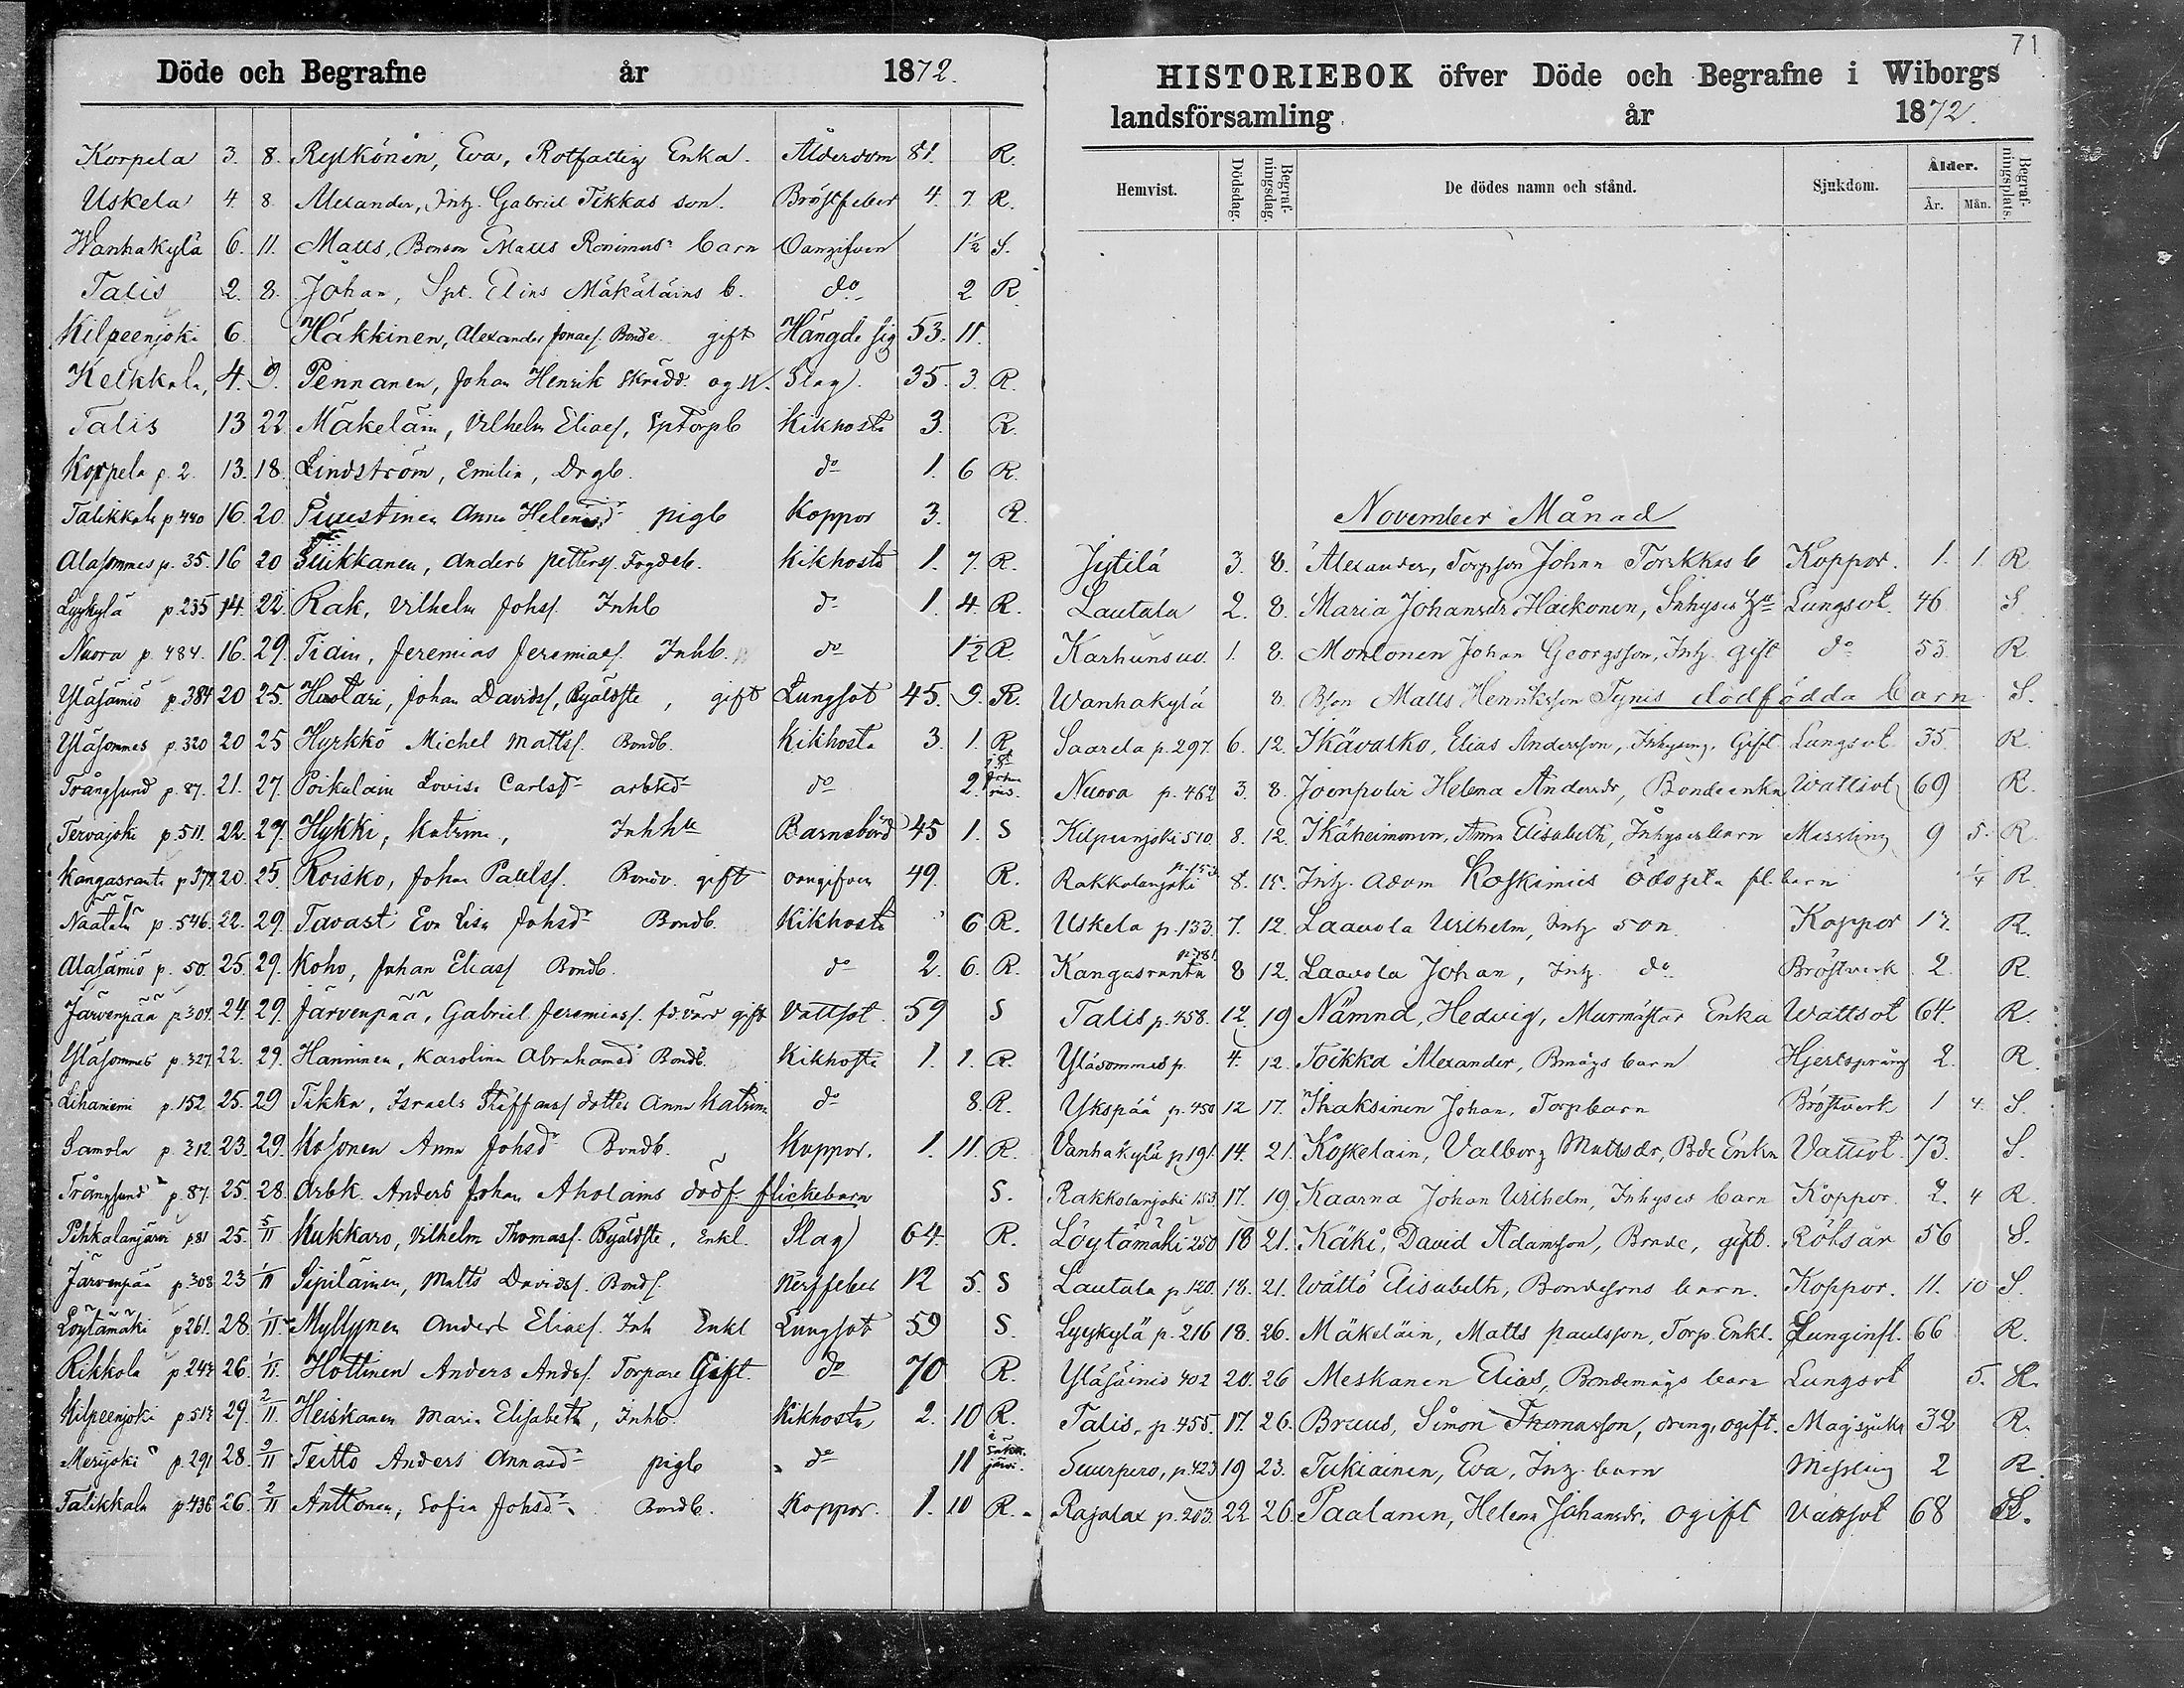 Döde och Begrafne år 1872.
Korpela 3. 8. Reijkönen, Eva, Rotfattig Enka. Ålderdom 81. R.
Uskela 4. 8. Alexander, Inhz. Gabriel Tikkas son. Bröstfeber 4. 7. R.
Wanhakylä 6. 11. Matts, Bonson Matts Ronimus barn Oangifven 1½ S.
Talis 2. 8. Johan, Spt. Elias Mäkäläins b. do 2 R.
Kilpeenjoki 6. Häkkinen, Alexander Jonaes. Bonde. gift Hängde sig 53. 11.
Kelkkala, 4. 9. Pennanen, Johan Henrik Skrädd. Slag. 35. 3. R.
Talis 13 22 Mäkeläin, Vilhelm Elias, SpTorpb Kikhosta 3. R.
Korpela p. 2. 13. 18. Lindström, Emilia, Drgb. do 1. 6 R.
Talikkala p 440 16. 20 Puustinen Anna Helenasd. pigb Koppor 3. R.
Alasommes p. 35. 16 20 Anders Petterss. Fogdeb. Kikhosta 1. 7. R.
Lyykylä p. 235 14. 22. Rak, Vilhelm Johss. Inhb do 1. 4. R.
Nuora p. 484. 16. 29. Tidin, Jeremias Jeremiaes. Inhb. do 1½ R.
Yläsäiniö p. 384 20 25. Huotari, Johan Davids, Byäldste, gift Lungsot 45. 9. R.
Yläsommes p. 320 20 25 Hyrkkö Michel Mattss. Bondb. Kikhosta 3. 1. R.
Trångsund p. 87. 21. 27. Poikolain Lovisa Carlsdr arbkd do 2.
Tervajoki p. 511. 22. 27. Hykki, Katrina, Inhha Barnsbörd 45 1. S
Kangasranta p 378 20. 25. Roisko, Johan Paulss. Bondv. gift oangifven 49. R.
Näätälä p. 546. 22. 29. Tavast Eva Lisa Johsdr Bondb. Kikhosta 6 R.
Alasäiniö p. 50. 25. 29. Koho, Johan Eliass Bondb. do 2. 6. R.
Järvenpää p. 304. 24. 29. Järvenpää, Gabriel Jeremiass. fd. värd gift Vattsot. 59 S
Yläsommes p. 327 22. 29. Hanninen, Karolina Abrahamsd Bondb. Kikhosta 1. 1. R.
Lihaniemi p. 152 25. 29 Tikka, Israels Staffanss dotter Anna Katrina do 8. R.
Samola p. 312. 23. 29. Kosonen Anna Johsdr Bondb. Koppor. 1. 11. R.
Trångsund p. 87. 25. 28. Arbk. Anders Johan Aholains dödf. flickebarn S.
Pihkalanjärvi p 81 25. 5/11 Kukkaro, Vilhelm Thomass. Byäldste, Enkl. Slag 64. R.
Järvenpää p. 308 23 1/11 Sipiläinen, Matts Davidss. Bonds. Nerffeber 12 5. S
Löytämäki p 261. 28. 1/11 Myllynen Anders Elias. Inh Enkl Lungsot 59 S.
Rikkola p 243 26. 1/11. Hottinen Anders Andss. Torpare Gift. do 70 R.
Kilpeenjoki p 513 29. 2/11. Heiskanen Maria Elisabeth, Inhb. Kikhosta 2. 10 R.
Merijoki p. 291 28. 2/11 Teitto Anders Annasdr pigb do 11
Talikkala p. 436 26. 2/11 Anttonen, Sofia Johsdr. Bondb. Koppor. 1. 10 R.
71
HISTORIEBOK öfver Döde och Begrafne i Wiborgs
landsförsamling år 1872.
Hemvist. Dödsdag. Begrafningsdag. De dödes namn och stånd. Sjukdom. Ålder. År. Mån. Begrafningsplats.
November Månad
Jytilä 3. 8. Alexander, Torpson Johan Torikkas b Koppor. 1. 1. R
Lautala 2. 8. Maria Johansdr Haikonen, Inhyses Lungsot. 46 S
Karhunsuo. 1. 8. Montonen Johan Georgsson, Inh. gift do 53. R
Wanhakylä 8. Bson Matts Henriksson Tynis dödfödda barn S.
Saarela p. 297. 6. 12. Ikävalko, Elias Andersson, Inhysing. Gift Lungsot 35. R.
Nuora p. 462 3. 8. Joenpolvi Helena Andersdr, Bondeenka Wattsot 69 R.
Kilpeenjoki 510. 8. 12. Ikäheimonen, Anna Elisabeth, Inhyses barn Messling 9 5. R.
Rakkolanjoki p. 153 8. 15. Inh. Adam Koskimies ödöpta fl. barn ¼ R
Uskela p. 133. 7. 12. Laavola Wilhelm, Inh son Koppor 12. R.
Kangasranta p. 781 8 12. Laavola Johan, Inh. do Bröstverk 2. R.
Talis p. 458. 12 19 Nämnd, Hedvig, Murmästar Enka Wattsot 64. R.
Yläsommes p. 4. 12. Toikka Alexander, Bmågs barn Hjertsprång 2. R.
Ykspää p. 450 12 17. Ihaksinen Johan, Torpbarn Bröstverk 1 4. S.
Vanhakylä p 191. 14. 21. Koskelain, Valborg Mattsdr, Bde Enka Vattsot. 73. S.
Rakkolanjoki 153 17. 19. Kaarna Johan Wilhelm, Inhyses barn Koppor. 2. 4 R.
Löytämäki 250 18 21. Käki, David Adamsson, Bonde, gift. Rötsår 56 S.
Lautala p. 120. 18. 21. Wättö Elisabeth, Bondesons barn. Koppor. 11. 10 S.
Lyykylä p. 216 18. 26. Mäkeläin, Matts Paulsson, Torp. Enkl. Lunginfl. 66 R.
Yläsäiniö 402 20. 26 Meskanen Elias, Bondemågs barn Lungsot 5. R.
Talis, p. 455. 17. 26. Bruus, Simon Thomasson, dreng, ogift. Magsjuka 32 R.
Suurpero, p. 423 19 23. Tukiainen, Eva, Inh. barn Messling 2 R.
Rajalax p. 203. 22 26. Paalanen, Helena Johansdr. ogift Vattsot 68